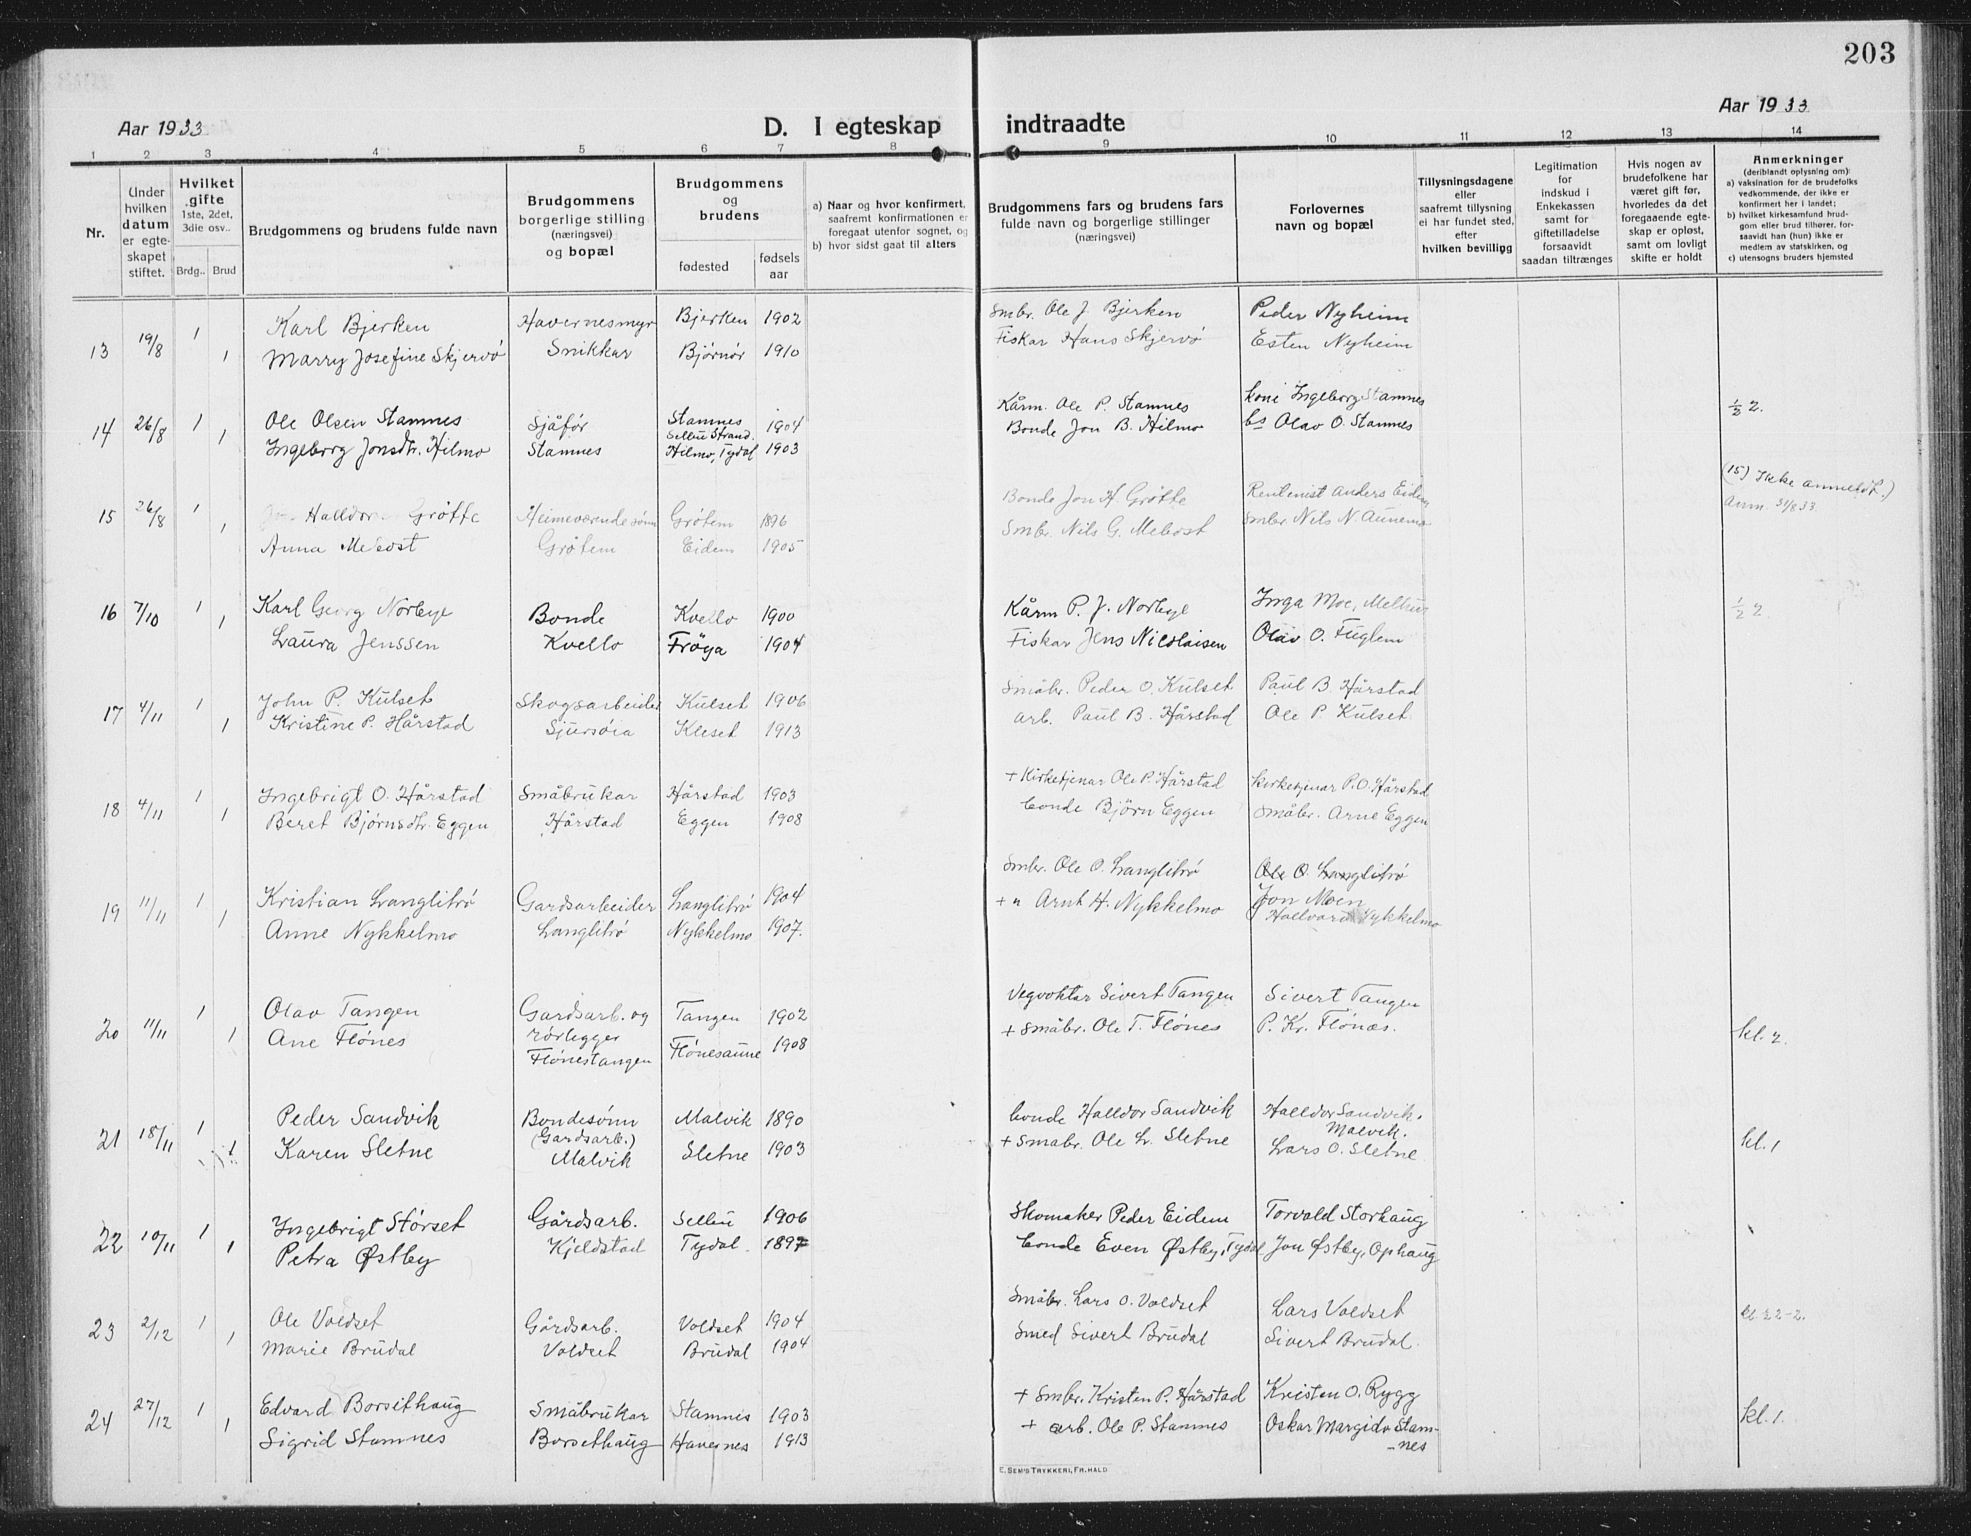 203
Aar 1933
D. I egteskap indtraadte
Aar 1933
1 2 3 4 5 6 7 8 9 10 11 12 13 14
Nr.
Under hvilken datum er egteskapet stiftet.
Hvilket gifte 1ste, 2det, 3die osv..
Brdg.. Brud
Brudgommens og brudens fulde navn
Brudgommens borgerlige stilling (næringsvei) og bopæl
Brudgommens og brudens
fødested
fødsels aar
a) Naar og hvor konfirmert, saafremt konfirmationen er foregaat utenfor sognet, og
b) hvor sidst gaat til alters
Brudgommens fars og brudens fars fulde navn og borgerlige stillinger (næringsvei)
Forlovernes navn og bopæl
Tillysningsdagene eller saafremt tillysning ei har fundet sted, efter hvilken bevillig
Legitimation for indskud i Enkekassen samt for giftetilladelse forsaavidt saadan tiltrænges
Hvis nogen av brudefolkene har været gift før, hvorledes da det foregaaende egteskap er opløst, samt om lovligt skifte er holdt
Anmerkninger (deriblandt oplysning om):
a) vaksination for de brudefolks vedkommende, der ikke er konfirmert her i landet;
b) hvilket kirkesamfund brudgom eller brud tilhører, forsaavidt han (hun) ikke er medlem av statskirken, og
c) utensogns bruders hjemsted
13 19/8 1 Karl Bjerken Havernesmyr Bjerken 1902 Smbr. Ole J. Bjerken Peder Nyheim
1 Marry Josefine Skjervö Snikkar Björnör 1910 Fiskar Hans Skjervö Esten Nyheim
14 26/8 1 Ole Olsen Stamnes Sjåför Stamnes Selbu Strand. 1904 Kårm. Ole P. Stamnes Koni Ingeborg Stamnes 1/2 2.
1 Ingeborg Jonsdtr. Hilmo Stamnes Hilmo, Tydal 1903 Bonde Jon B. Hilmo bs Olav O. Stamnes
15 26/8 1 Halldor Grötte Heimeværende sönn Grötem 1896 Bonde Jon H. Grötte Rentenist Anders Eidem (15) Ikke anmeldt.)
1 Anna Mebost Grötem Eidem 1905 Smbr. Nils G. Mebost Smbr Nils N. Aunemo Anm. 31/8 33.
16 7/10 1 Karl Georg Norbye Bonde Kvello 1900 Kårm P. J. Norbye Inga Moe, Melhus 1/2 2
1 Laura Jenssen Kvello Fröya 1904 Fiskar Jens Nicolaisen Olav O. Fuglem
17 4/11 1 John P. Kulset Skogsarbeider Kulset 1906 Småbr. Peder O. Kulset Paul B. Hårstad
1 Kristine P. Hårstad Sjursöia Kleset 1913 arb. Paul B. Hårstad Ole P. Kulset
18 4/11 1 Ingebrigt O. Hårstad Småbrukar Hårstad 1903 + Kirketjenar Ole P. Hårstad Kirketjenar P. O. Hårstad
1 Beret Björnsdtr. Eggen Hårstad Eggen 1908 bonde Björn Eggen Småbr. Arne Eggen
19 11/11 1 Kristian Langlitrö Gardsarbeider Langlitrö 1904 Smbr. Ole O. Langlitrö Ole O. Langlitrö
1 Anne Nykkelmo Langlitrö Nykkelmo 1907. + " Arnt H. Nykkelmo Jon Moen
Hallvard Nykkelmo
20 11/11 1 Olav Tangen Gardsarb. og Tangen 1902 Vegvoktar Sivert Tangen Sivert Tangen
1 Ane Flönes rörlegger Flönestangen Flönesaune 1908 + Småbr. Ole T. Flönes P. Kr. Flönæs. kl. 2.
21 18/11 1 Peder Sandvik Bondesönn Malvik 1890 bonde Halldor Sandvik Halldor Sandvik. Malvik.
1 Karen Sletne (Gardsarb.) Malvik Sletne 1903 + Småbr. Ole L. Sletne Lars O. Sletne kl. 1
22 10/11 1 Ingebrigt Störset Gårdsarb. Selbu 1906 Skomaker Peder Eidem Torvald Storhaug
1 Petra Østby Kjeldstad Tydal 1897 bonde Even Østby, Tydal Jon Østby, Ophaug
23 2/12 1 Ole Voldset Gårdsarb. Voldset 1904 Småbr. Lars O. Voldset Lars Voldset
1 Marie Brudal Voldset Brudal 1904 Smed Sivert Brudal Sivert Brudal.
24 27/12 1 Edvard Borsethaug Småbrukar Stamnes 1903 + Smbr. Kristen P. Hårstad Kristen O. Rygg
1 Sigrid Stamnes Borsethaug Havernes 1913 + arb. Ole P. Stamnes Oskar Margido Stamnes kl. 1.
E. SEM'S TRYKKERI, FR.HALD